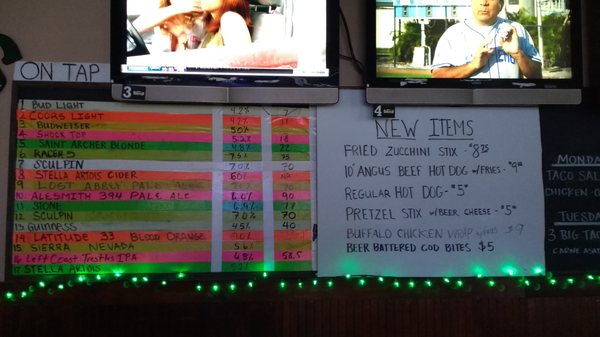 3
4
ON TAP
1 BUD LIGHT 4.2%
2 COORS LIGHT 4.2% 11
3 BUDWEISER 50%
4 SHOCK TOP 5.2% 18
5 SAINT ARCHER BLONDE 4.8% 22
6 RACER 5 7.5% 75
7 SCULPIN 7.0% 70
8 STELLA ARTOIS CIDER NA
9 LOST ABBEY PALE ALE
10 ALESMITH 394 PALE ALE 6.0% 90
11 STONE 6.9% 77
12 SCULPIN 7.0% 70
13 GUINNESS 4.5% 40
14 LATITUDE 33 BLOOD ORANGE
15 SIERRA NEVADA 5.6%
16 LEFT COAST TRESTLES IPA 6.8% 58.5
17 STELLA ARTOIS
NEW ITEMS
FRIED ZUCCHINI STIX - $8.75
10" ANGUS BEEF HOT DOG W/FRIES - $9
REGULAR HOT DOG - $5
PRETZEL STIX W/BEER CHEESE - $5
BUFFALO CHICKEN WRAP $9
BEER BATTERED COD BITES $5
MONDA
TACO SAL
CHICKEN O
TUESDA
3 BIG TA
CARNE ASAD